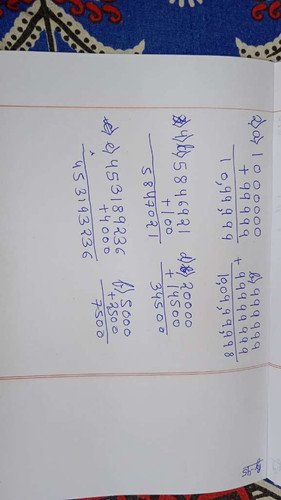 2) a) 1000000
+ 99999
10,99,999
b) 999999
+ 9999999
1,09,99,998
c) 5846921
+ 100
5847021
d) 20000
+ 14500
34500
e) 453189236
+ 4000
453193236
f) 5000
+ 2500
7500